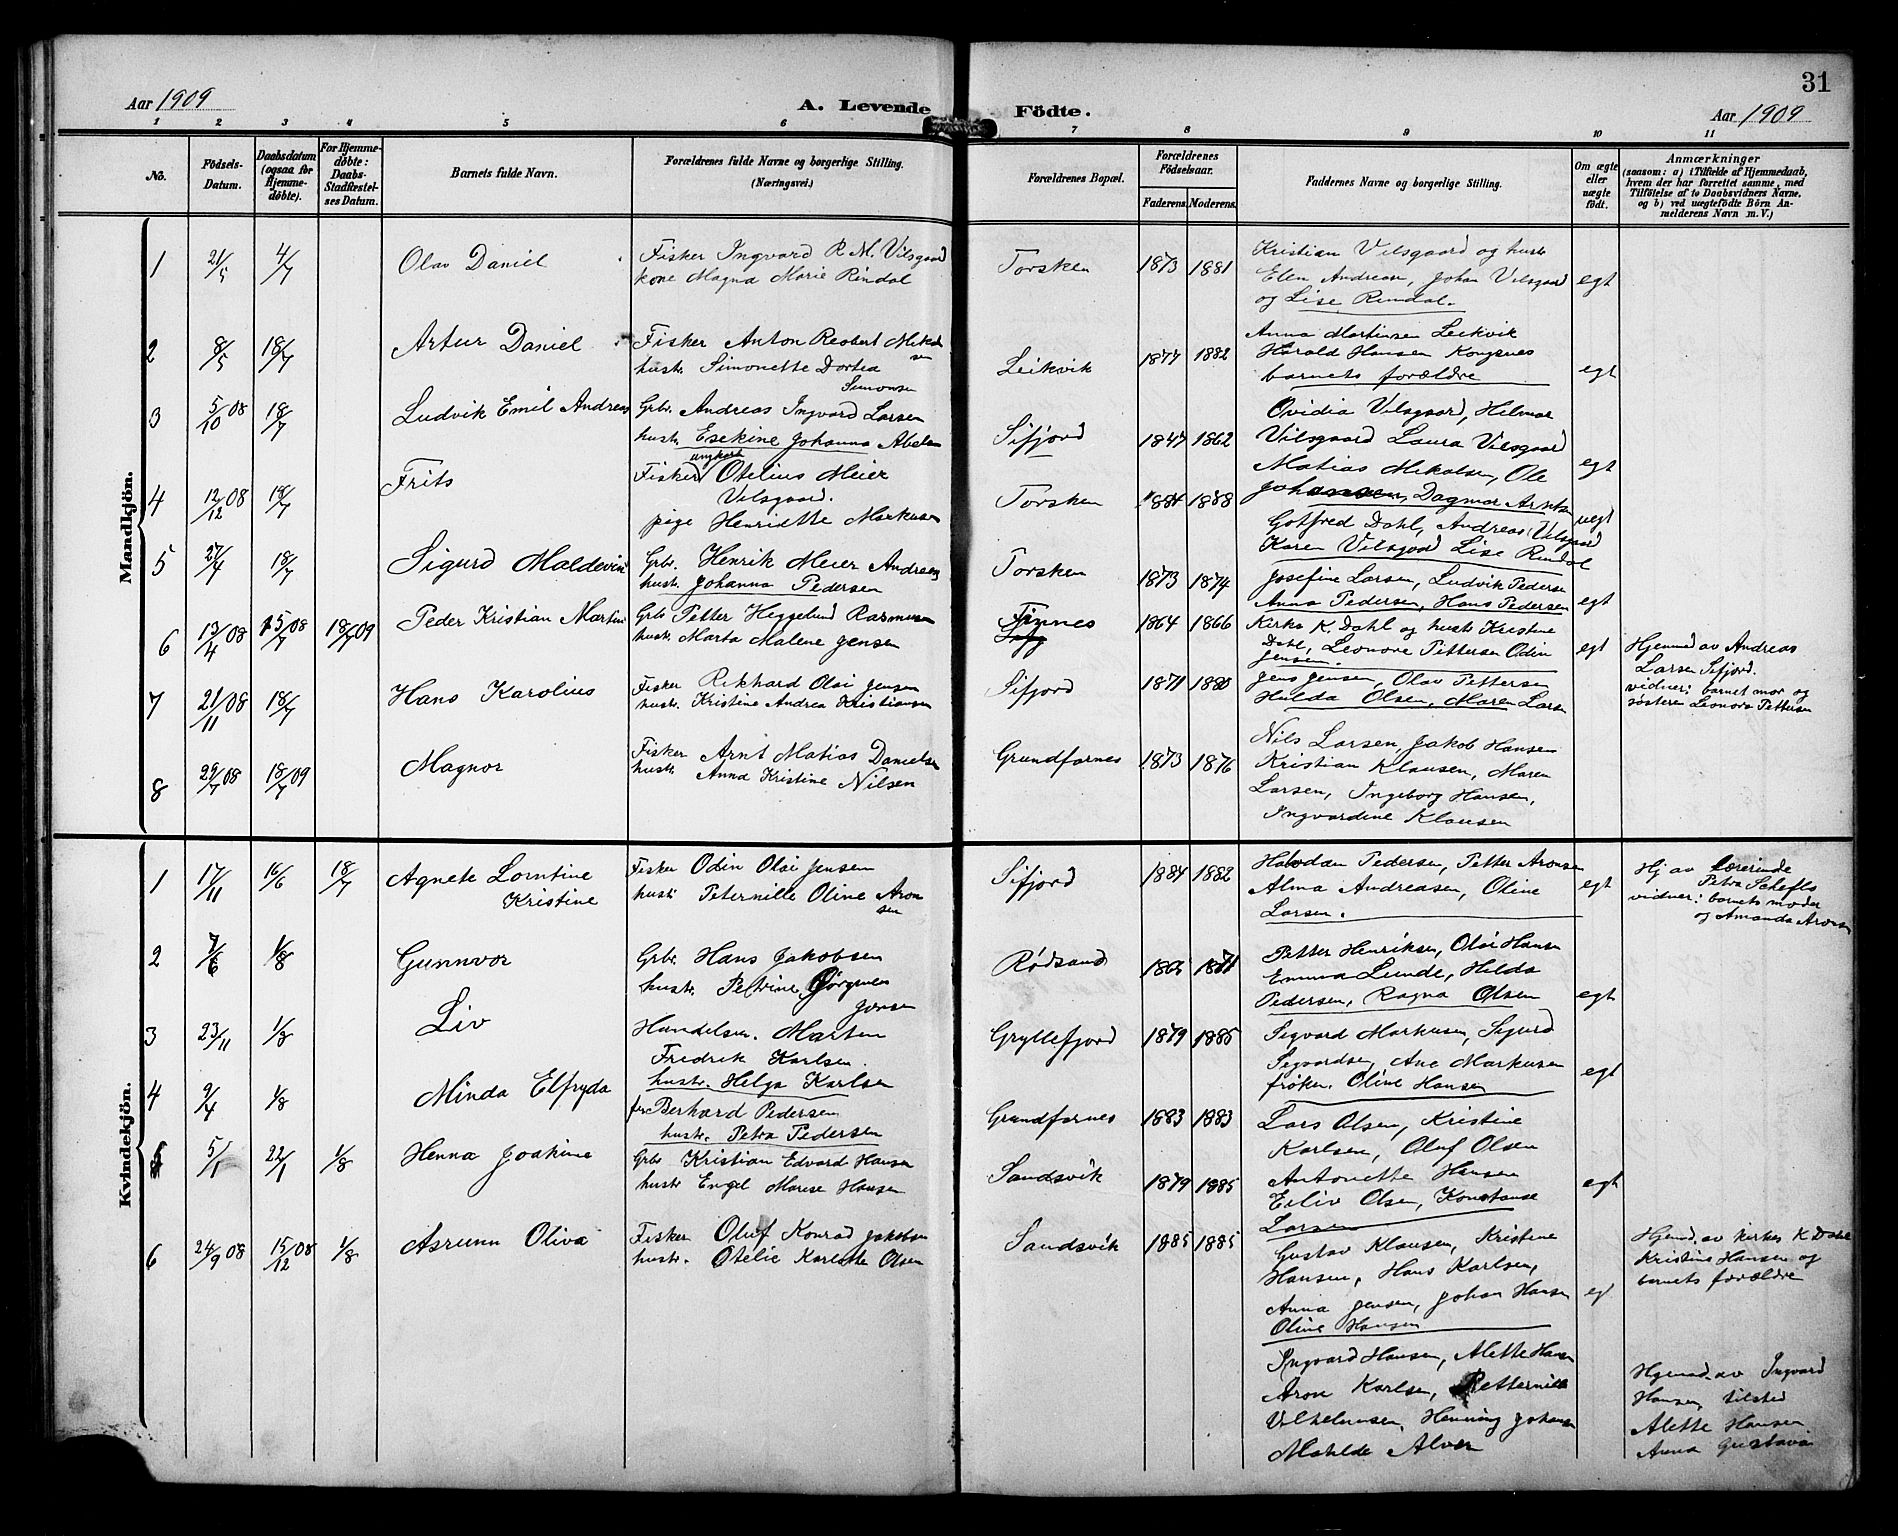 31
Aar 1909
A. Levende Födte.
Aar 1909
1 2 3 4 5 6 7 8 9 10 11
No.
Födsels-Datum.
Daabsdatum (ogsaa for Hjemmedöbte).
For Hjemmedöbte: Daabs-Stadfæstelses Datum.
Barnets fulde Navn.
Forældrenes fulde Navne og borgerlige Stilling. (Næringsvei.)
Forældrenes Bopæl.
Forældrenes Födselsaar.
Faderens. Moderens.
Faddernes Navne og borgerlige Stilling.
Om ægte eller uægte födt.
Anmærkninger
(saasom: a) i Tilfælde af Hjemmedaab, hvem der har forrettet samme, med Tilföielse af to Daabsvidners Navne, og b) ved uægtefödte Börn Anmelderens Navn m. V.)
Mandkjön.
1 21/5 4/7 Olav Daniel
Fisker Ingvard R. M. Vilsgaard
kone Magna Marie Rindal
Torsken 1873 1881
Kristian Vilsgaard og hustr
Elen Andrean, Johan Vilsgaard
og Lise Rindal.
egt
2 8/5 18/7 Artur Daniel
Fisker Anton Reobert Mikalsen
hustr. Simonette Dortea Simonsen
Leikvik 1877 1882
Anna Martinsen Leikvik
Harald Hansen Kongsnes
barnets forældre
egt
3 5/10 08 18/7 Ludvik Emil Andreas
Grbr. Andreas Ingvard Larsen
hustr Esekine Johanna Abelsen
Sifjord 1847 1862
Ovidia Vilsgaard, Hilmar
Vilsgaard Laura Vilsgaard
egt
4 12/12 08 18/7 Frits
Fisker ungkarl Otelius Meier
Vilsgaard.
pige Henriette Markusen
Torsken 1884 1888
Matias Mikalsen, Ole
Johansen, Dagmar Arntsen
uegt
5 27/4 18/7 Sigurd Maldevin
Grbr. Henrik Meier Andreasen
hustr. Johanna Pedersen
Torsken 1873 1874
Gotfred Dahl, Andreas Vilsgaard
Karen Vilsgaard Lise Rindal
Josefine Larsen, Ludvik Pedersen
Anna Pedersen, Hans Pedersen
egt
6 13/4 08 15/7 08 18/7 09 Peder Kristian Martin
Grbr Petter Heggelund Rasmusen
hustr. Marta Malene Jensen
1864 1866
Kirks. K. Dahl og hustr Kristine
Dahl, Leonore Pettersen Odin
Jensen.
egt
Hjemmed av Andreas
Larsen Sifjord.
vidner: barnet mor og
søsteren Leonora Pettersen
7 21/11 08 18/7 Hans Karolius
Fisker Rikhard Olai Jensen
hustr. Kristine Andrea Kristiansen
Sifjord 1871 1880
Jens Jensen, Olav Pettersen
Hulda Olsen, Maren Larsen
8 29/7 08 18/7 09 Magnor
Fisker Arnt Matias Danielsen
hustr. Anna Kristine Nilsen
Grundfarnes 1873 1876
Nils Larsen, Jakob Hansen
Kristian Klausen, Maren
Larsen, Ingeborg Hansen,
Ingvardine Klausen
Kvindekjön.
1 17/11 16/6 18/7 Agnete Lorntine
Kristine
Fisker Odin Olai Jensen
hustr Peternille Oline Aronsen
Sifjord 1884 1882
Halvdan Pedersen, Petter Aronsen
Alma Andreasen, Oline
Larsen.
egt
Hj av lærerinde
Petra
vidner: barnets moder
og Amanda Aronsen
2 7/6 1/8 Gunnvor
Grbr. Hans Jakobsen
hustr. Petrine Jørgnes
Jonsen
Rødsand 1865 1871
Petter Henriksen, Olai Hansen
Emma Lunde, Hilda
Pedersen, Ragna Olsen
egt
3 23/11 1/8 Liv
Handelsm. Marten
Fredrik Karlsen.
hustr. Helga Karlsen
Gryllefjord 1879 1885
Sigvard Markusen, Sigurd
Sigvardsen, Ane Markusen
frøken. Oline Hansen
egt
4 9/4 1/8 Minda Elfryda
Berhard Pedersen
hustr. Petra Pedersen
Grundfarnes 1883 1883
Lars Olsen, Kristine
Karlsen, Oluf Olsen
5/1 22/1 1/8 Henna Joakine
Grbr Kristian Edvard Hansen
hustr Engel Marese Hansen
Sandsvik 1879 1885
Antonette Hansen
Eiliv Olsen, Konstanse
Larsen
egt
6 24/9 08 15/12 08 1/8 Asrunn Oliva
Fisker Oluf Konrad Jakobsen
hustr. Otelie Karlotte Olsen
Sandsvik 1885 1885
Gustav Klausen, Kristine
Hansen, Hans Karlsen,
Anna Jensen, Johan Hansen
Oline Hansen
egt
Hjemd. av kirkes. K Dahl
Kristine Hansen og
barnets forældre
Ingvard Hansen, Alette Hansen
Aron Karlsen, Petternille
Vilhelmsen, Henning Johansen
Matilde Alver
Hjemd. av Ingvard
Hansen, tilsted
Alette Hansen
Anna Gustava